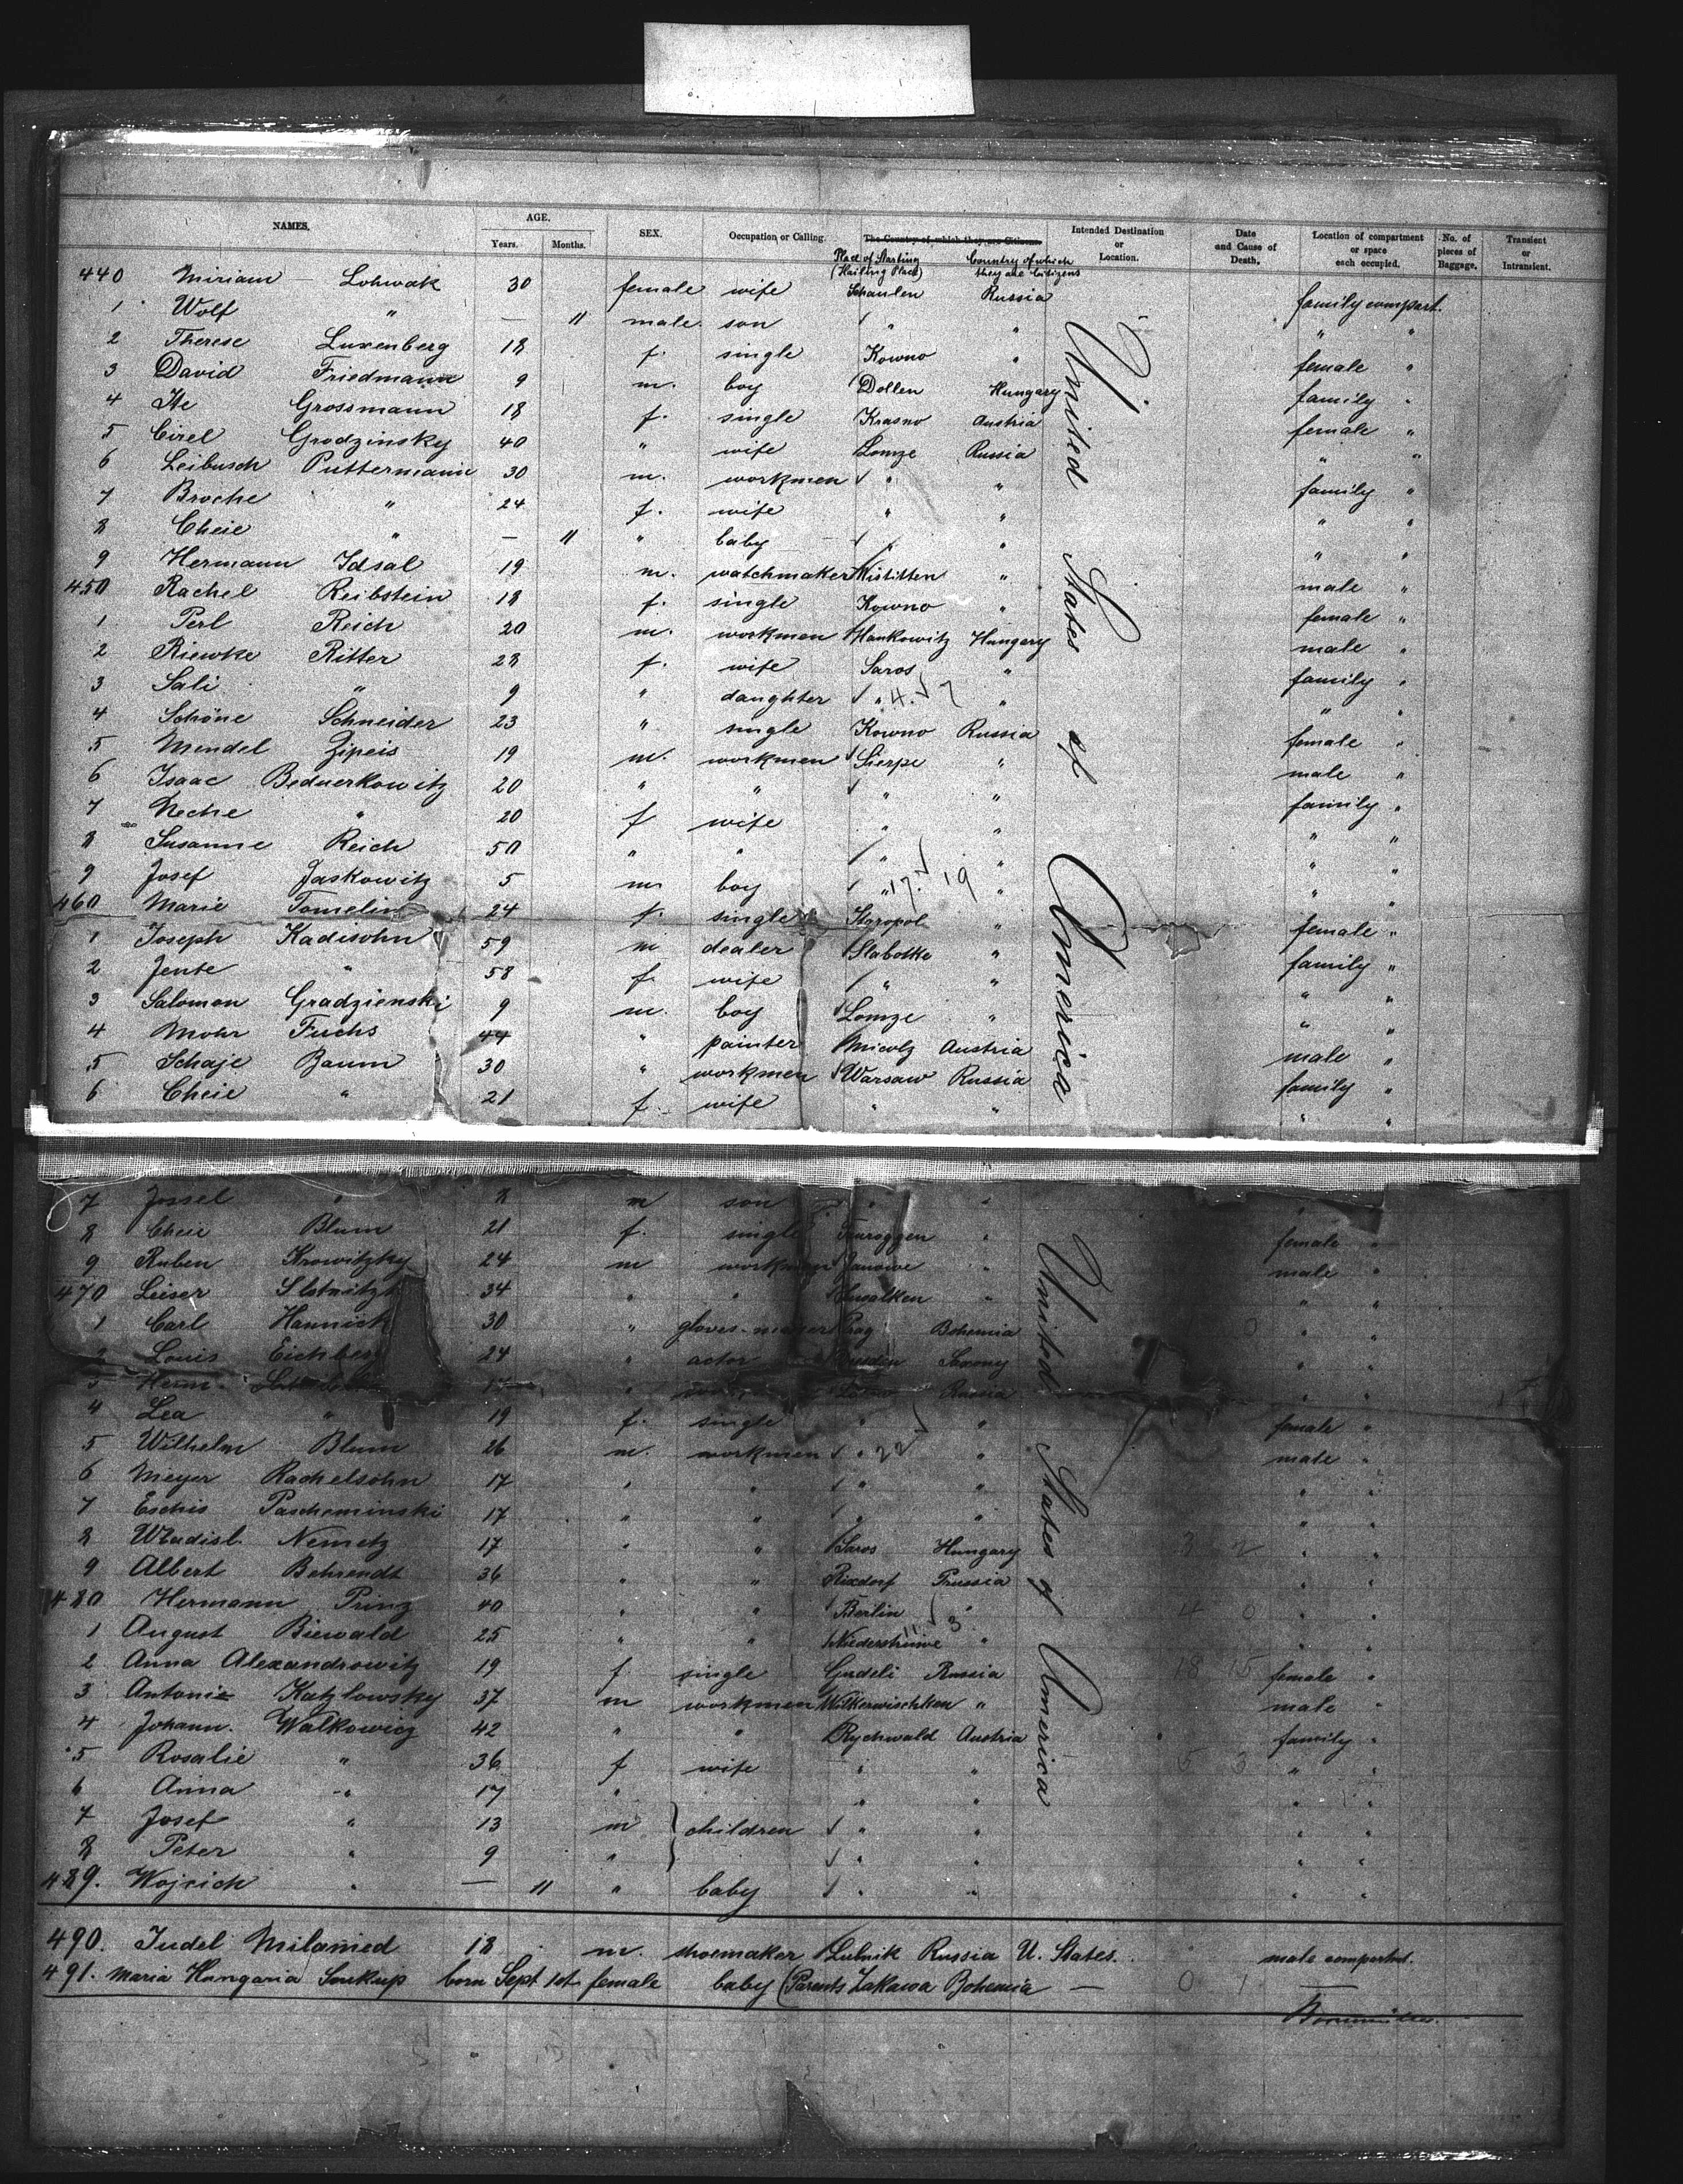 NAMES. AGE. SEX. Occupation or Calling. The Country of which they are Citizens. Intended Destination or Location. Date and Cause of Death. Location of compartment or space each occupied. No. of pieces of Baggage. Transient or Intransient.
Years. Months. Place of Starting (Hailing Place) Country of which they are Citizens
440 Miriam Lohwak 30 female wife Schaulen Russia family compart.
1 Wolf " — 11 male son " " " "
2 Therese Luxenberg 18 f. single Kowno " female "
3 David Friedmann 9 m. boy Dollen Hungary family "
4 Ite Grossmann 18 f. single Krasno Austria female "
5 Cirel Grodzinsky 40 " wife Lomze Russia " "
6 Leibusch Puttermann 30 m. workmen " " family "
7 Broche " 24 f. wife " " " "
8 Cheie " — 11 " baby " " " "
9 Hermann Idsal 19 m. watchmaker Wistitten " male "
450 Rachel Reibstein 18 f. single Kowno " female "
1 Perl Reich 20 m. workmen Hankowitz Hungary male "
2 Riewke Ritter 28 f. wife Saros " family "
3 Sali " 9 " daughter " 4. 7 " " "
4 Schöne Schneider 23 " single Kowno Russia female "
5 Mendel Zipeis 19 m. workmen Sierpe " male "
6 Isaac Beduerkowitz 20 " " " " family "
7 Neche " 20 f wife " " " "
8 Susanne Reich 50 " " " " " "
9 Josef Jaskowitz 5 m boy " 17. 19 " " "
460 Marie Tomelin 24 f. single Staropol " female "
1 Joseph Kadisohn 59 m dealer Slabotke " family "
2 Jente " 58 f. wife " " " "
3 Salomon Gradzienski 9 m. boy Lomze " " "
4 Mohr Fuchs 44 " painter Micolz Austria male "
5 Schaje Baum 30 " workmen Warsaw Russia family "
6 Cheie " 21 f. wife " " " "
United States of America
7 Jossel " 8 m son " " "
8 Cheie Blum 21 f. single Tauroggen " female "
9 Ruben Krowitzky 24 m workmen Janowe " male "
470 Leiser 34 " " Suwalken " " "
1 Carl Hannich 30 " gloves-maker Prag Bohemia " "
2 Louis Eichberg 24 " actor Dresden Saxony " "
3 Herm. 17 " Russia " "
4 Lea " 19 f. single " " female "
5 Wilhelm Blum 26 m. workmen " 22 " male "
6 Meyer Rachelsohn 17 " " " " " "
7 Eschis Pascheminski 17 " " " " " "
8 Wladisl. Nemetz 17 " " Saros Hungary " "
9 Albert Behrendt 36 " " Rixdorf Prussia " "
480 Hermann Prinz 40 " " Berlin " 4 0 " "
1 August Biewald 25 " " 11 3 " " "
2 Anna Alexandrowitz 19 f. single Gudeli Russia 18 15 female "
3 Antonie Katzlowsky 37 m workmen Wilkerwischken " male "
4 Johann. Walkowicz 42 " " Rychwald Austria family "
5 Rosalie " 36 f wife " " 5 3 " "
6 Anna " 17 " " " " "
7 Josef " 13 m children " " " "
8 Peter " 9 " " " " "
489. Wojcich " — 11 " baby " " " "
United States of America
490. Judel Milamed 18 m. shoemaker Lubnik Russia U. States. male compartmt.
491. Maria Hungaria Soukup born Sept 1st. female baby (Parents Zakawa Bohemia — 0 1 —